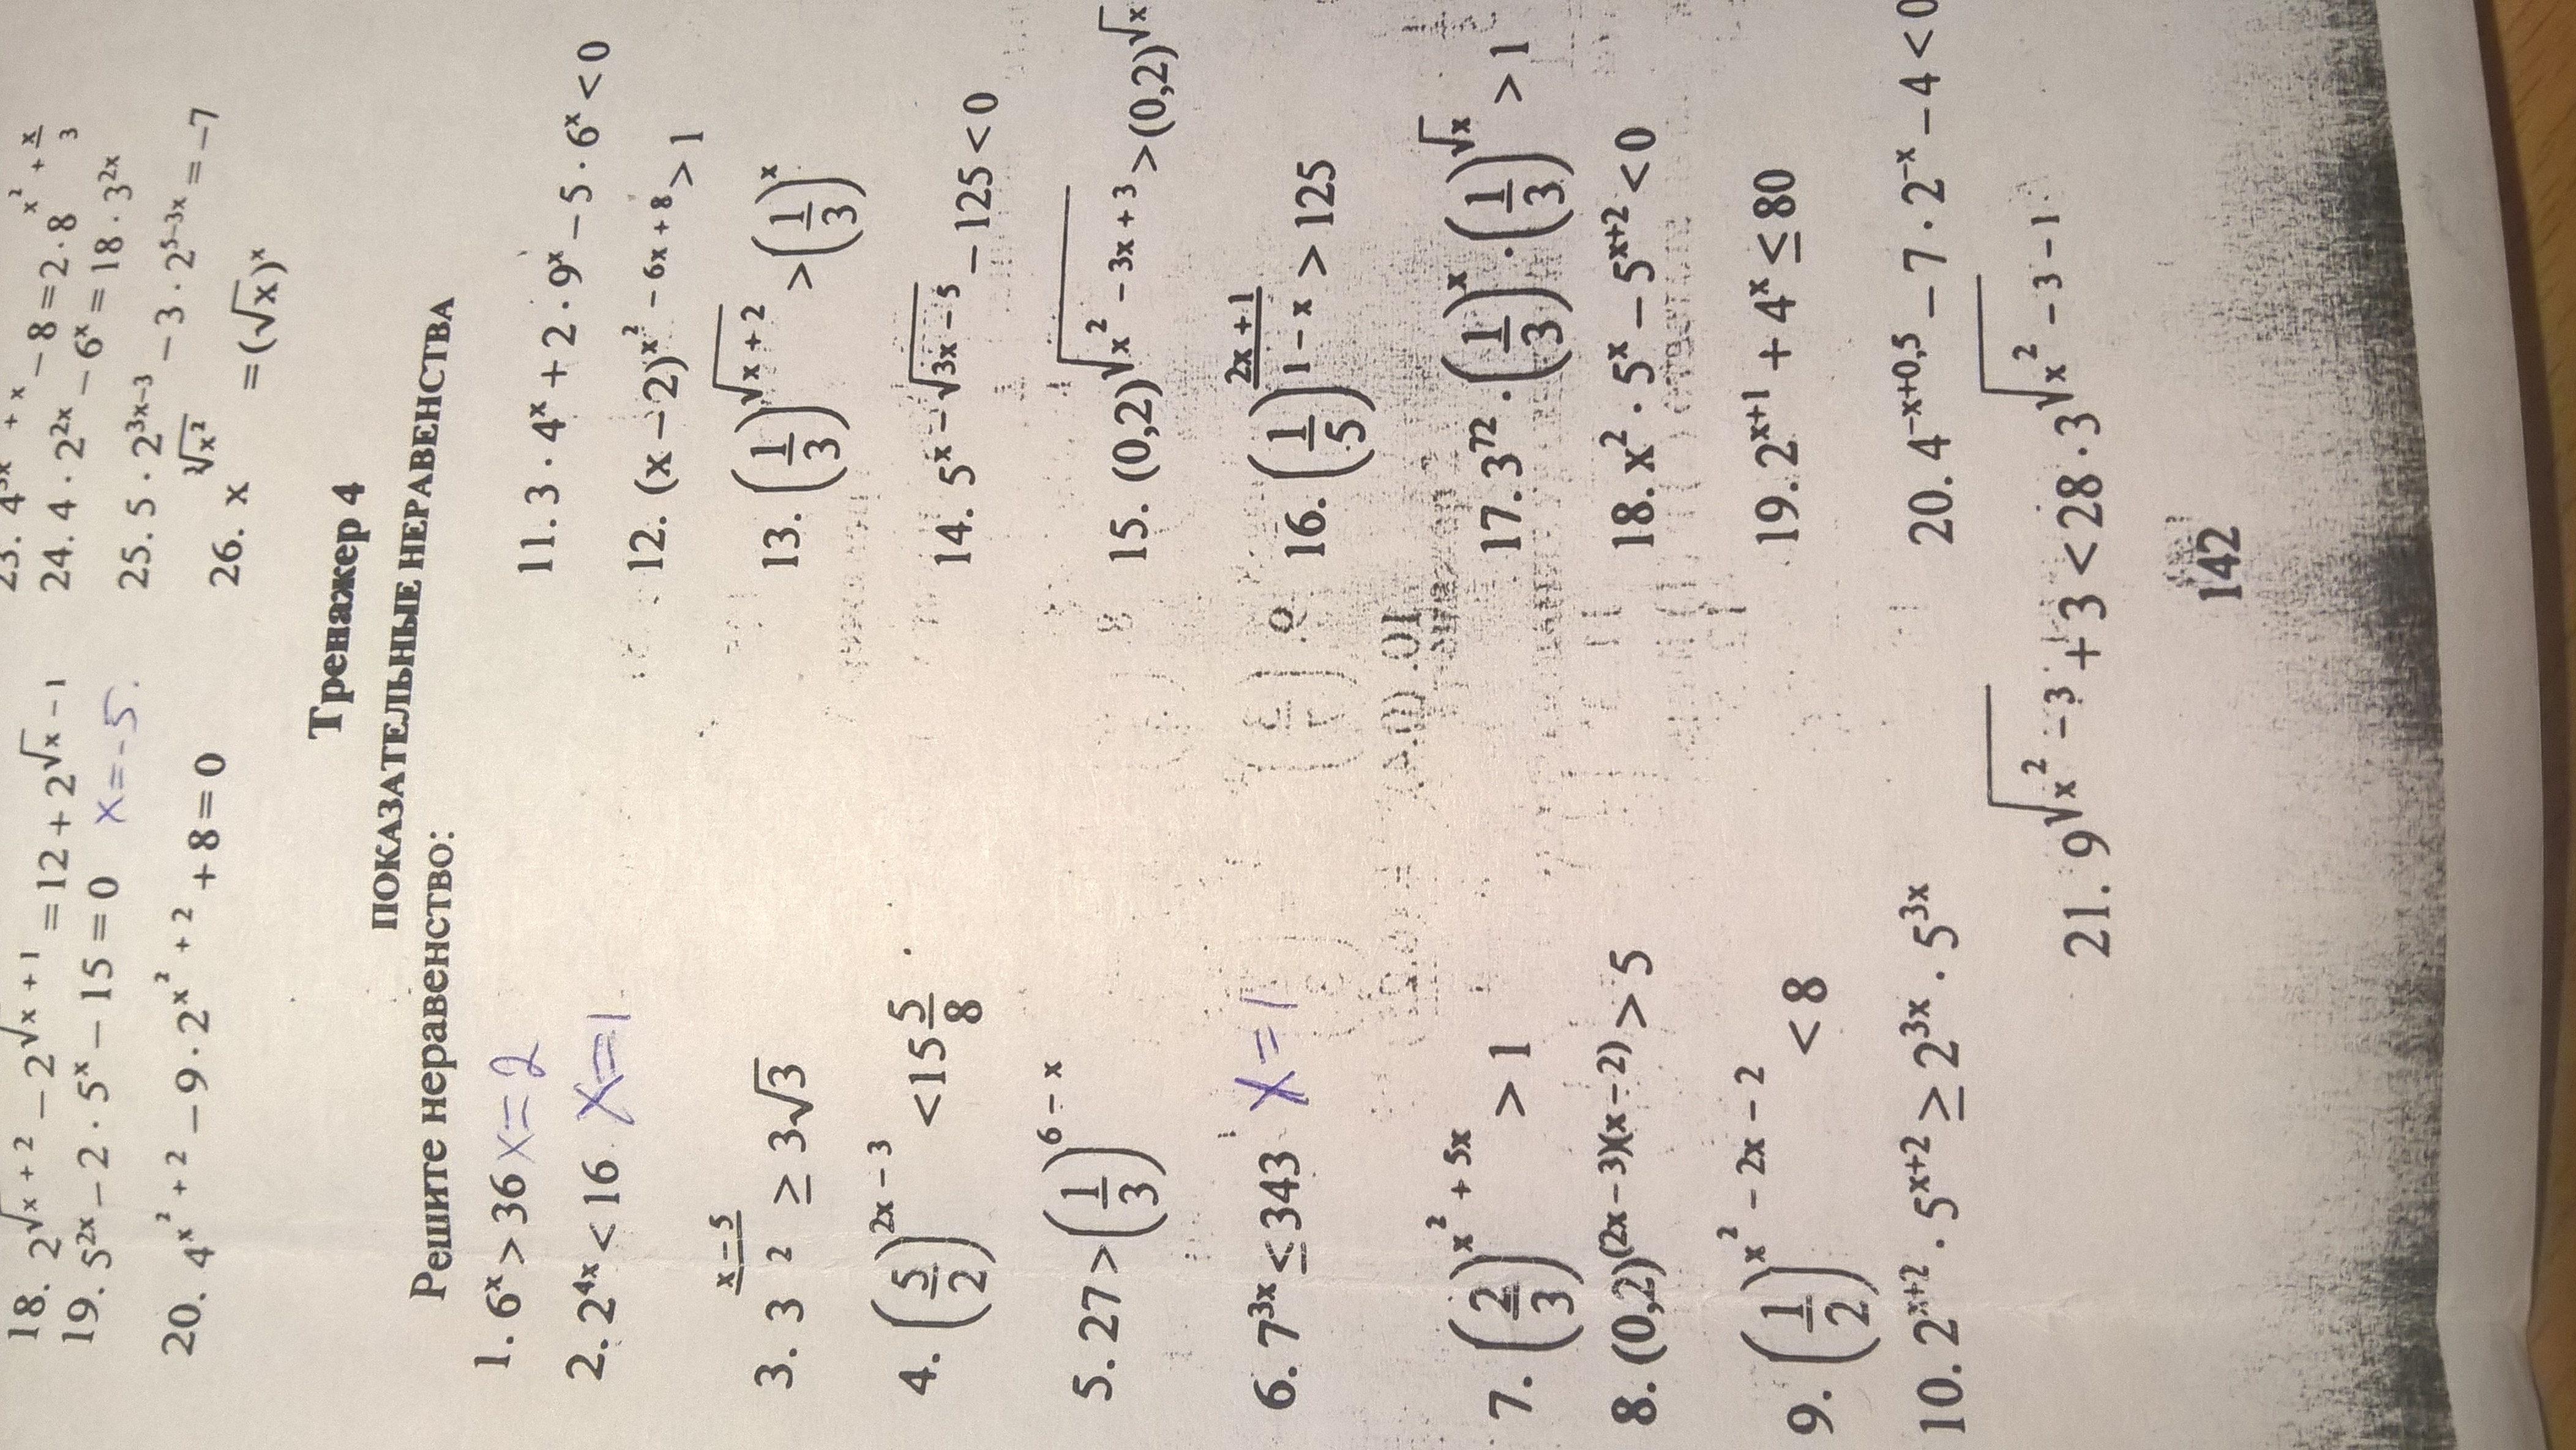 18. 2^{√x+2} − 2^{√x+1} = 12 + 2^{√x−1}
19. 5^{2x} − 2 · 5^x − 15 = 0 x=-5.
20. 4^{x²+2} − 9 · 2^{x²+2} + 8 = 0
− 8 = 2 · 8^{x² + x/3}
24. 4 · 2^{2x} − 6^x = 18 · 3^{2x}
25. 5 · 2^{3x−3} − 3 · 2^{5−3x} = −7
26. x^{∛x²} = (√x)^x
Тренажер 4
ПОКАЗАТЕЛЬНЫЕ НЕРАВЕНСТВА
Решите неравенство:
1. 6^x > 36 x=2
2. 2^{4x} < 16 x=1
3. 3^{(x−5)/2} ≥ 3√3
4. (5/2)^{2x−3} < 15 5/8
5. 27 > (1/3)^{6−x}
6. 7^{3x} ≤ 343 x=1
7. (2/3)^{x²+5x} > 1
8. (0,2)^{(2x−3)(x−2)} > 5
9. (1/2)^{x²−2x−2} < 8
10. 2^{x+2} · 5^{x+2} ≥ 2^{3x} · 5^{3x}
11. 3 · 4^x + 2 · 9^x − 5 · 6^x < 0
12. (x − 2)^{x²−6x+8} > 1
13. (1/3)^{√(x+2)} > (1/3)^x
14. 5^{x−√(3x−5)} − 125 < 0
15. (0,2)^{√(x²−3x+3)} > (0,2)^{√x}
16. (1/5)^{(2x+1)/(1−x)} > 125
17. 3^{72} · (1/3)^x · (1/3)^{√x} > 1
18. x² · 5^x − 5^{x+2} < 0
19. 2^{x+1} + 4^x ≤ 80
20. 4^{−x+0,5} − 7 · 2^{−x} − 4 < 0
21. 9^{√(x²−3)} + 3 < 28 · 3^{√(x²−3)−1}
142